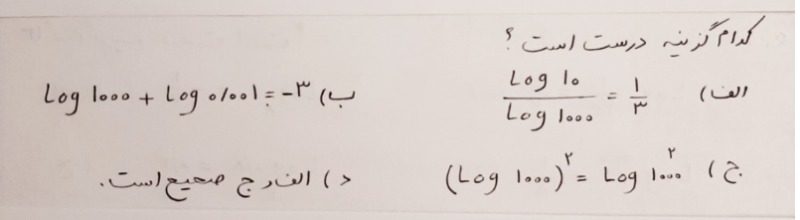 کدام گزینه درست است؟
الف) Log ۱۰ / Log ۱۰۰۰ = ۱/۳
ب) Log ۱۰۰۰ + Log ۰/۰۰۱ = -۳
ج) (Log ۱۰۰۰)^۲ = Log ۱۰۰۰^۲
د) الف و ج صحیح است.